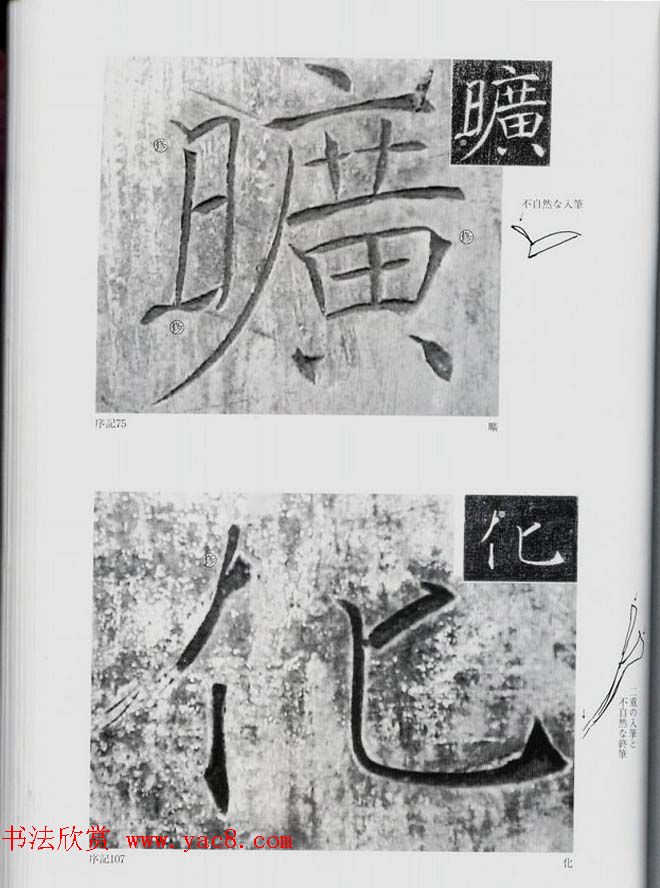 曠
修
修
修
曠
不自然な入筆
序記75
曠
化
修
化
二重の入筆と
不自然な終筆
书法欣赏 www.yac8.com
序記107
化